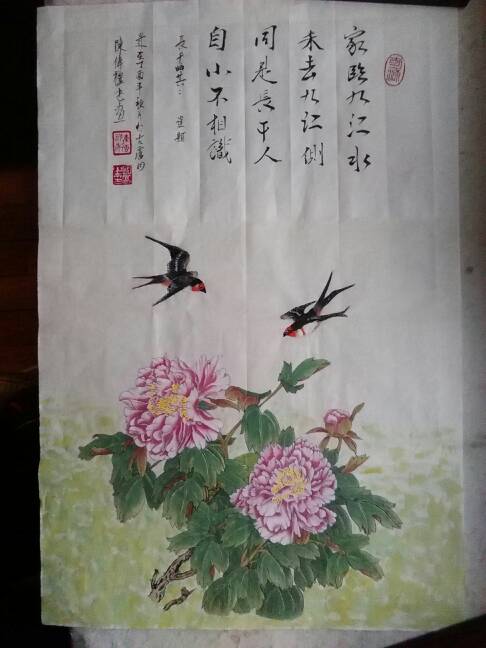 家臨九江水
来去九江側
同是長干人
自小不相識
長干曲其二 崔顥
丁酉年秋月於
陳偉